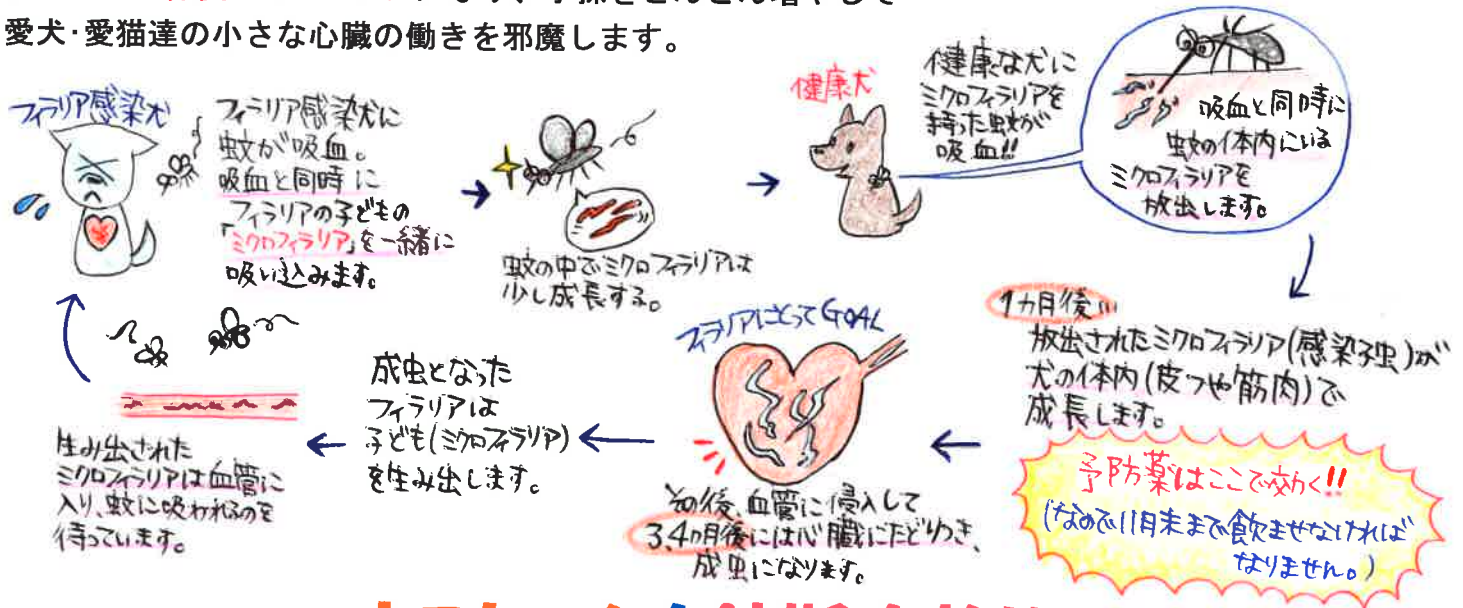 愛犬・愛猫達の小さな心臓の働きを邪魔します。
フィラリア感染犬
フィラリア感染犬に
蚊が吸血。
吸血と同時に
フィラリアの子どもの
「ミクロフィラリア」を一緒に
吸い込みます。
蚊の中でミクロフィラリアは
少し成長する。
健康犬
健康な犬に
ミクロフィラリアを
持った蚊が
吸血!!
吸血と同時に
蚊の体内にいる
ミクロフィラリアを
放出します。
1ヵ月後…
放出されたミクロフィラリア(感染子虫)が
犬の体内(皮フや筋肉)で
成長します。
予防薬はここで効く!!
(なので11月末まで飲ませなければ
なりません。)
フィラリアにとってGOAL
その後、血管に侵入して
3.4ヵ月後には心臓にたどりつき、
成虫になります。
成虫となった
フィラリアは
子ども(ミクロフィラリア)
を生み出します。
生み出された
ミクロフィラリアは血管に
入り、蚊に吸われるのを
待っています。